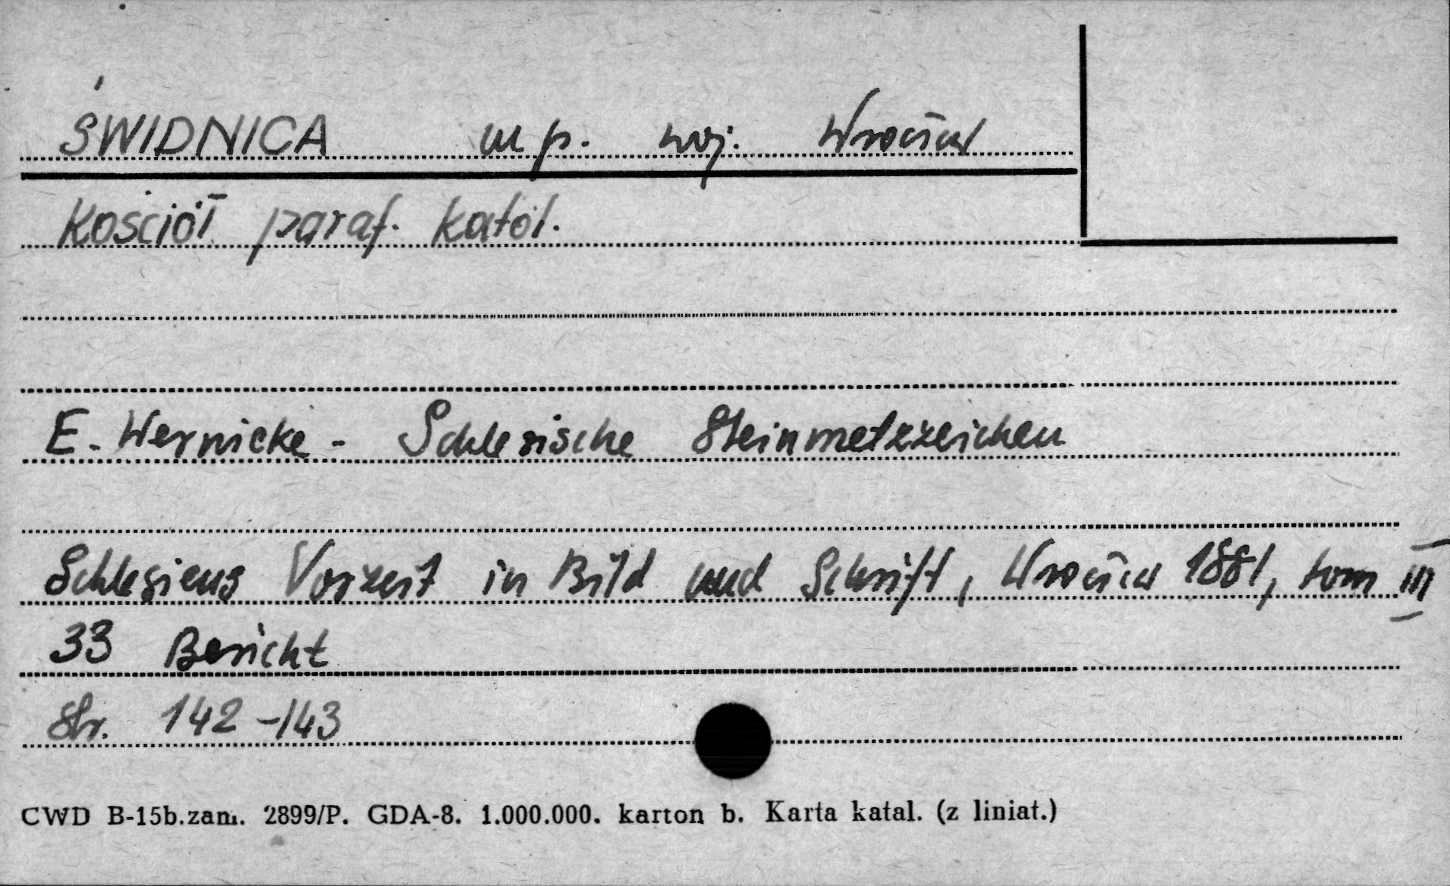 ŚWIDNICA m p. woj. Wrocław
Kościół paraf. katol.
E. Wernicke - Schlesische Steinmetzzeichen
Schlesiens Vorzeit in Bild und Schrift, Wrocław 1881, tom III
33 Bericht
Str. 142-143
CWD B-15b.zam. 2899/P. GDA-8. 1.000.000. karton b. Karta katal. (z liniat.)